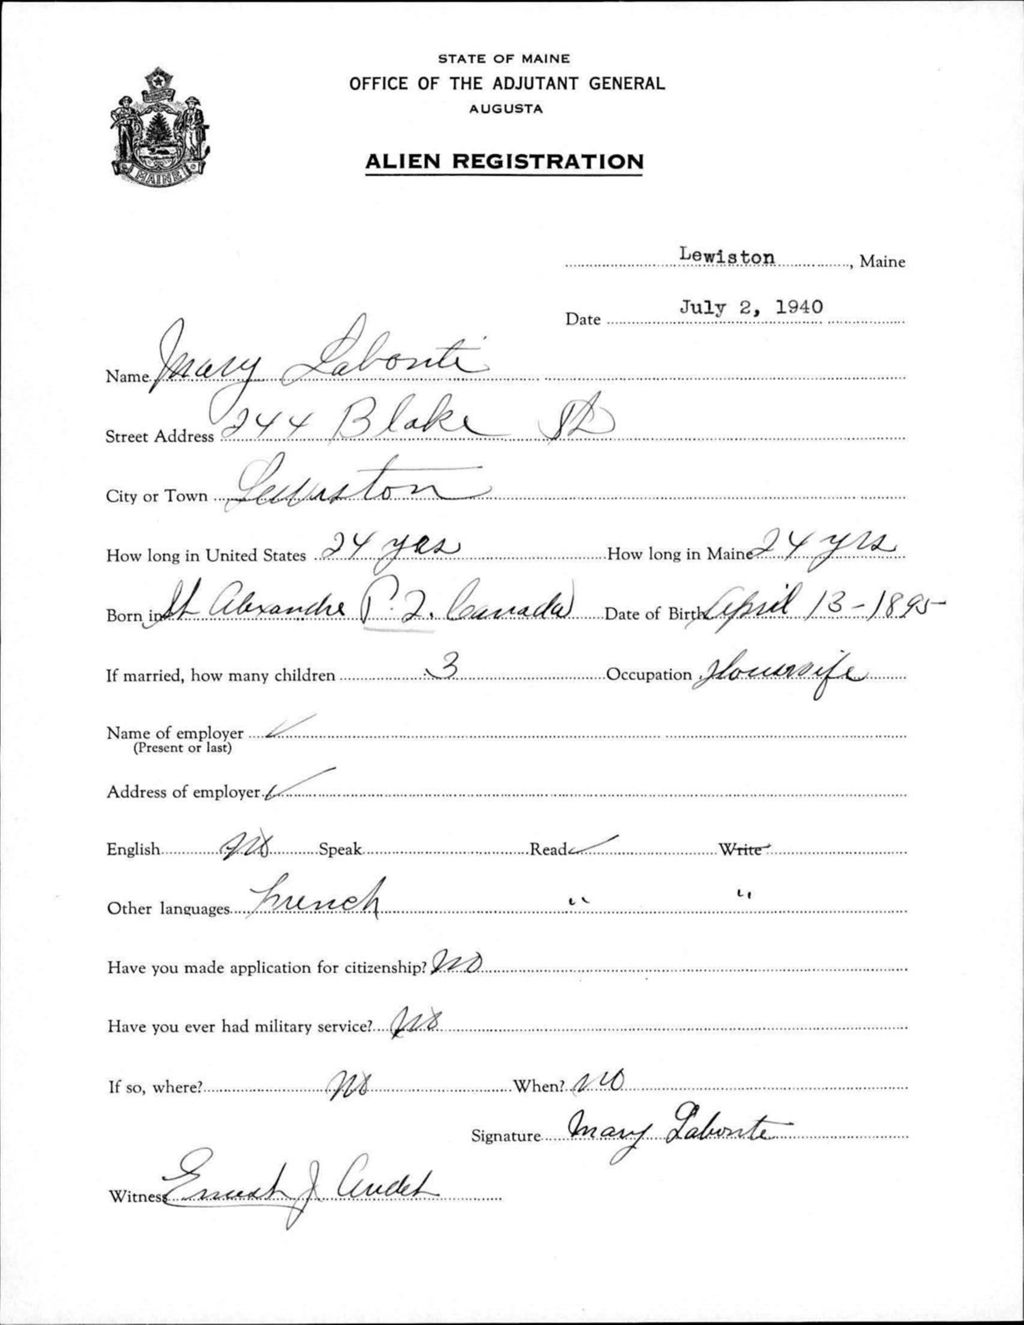 STATE OF MAINE
OFFICE OF THE ADJUTANT GENERAL
AUGUSTA
MAINE
ALIEN REGISTRATION
Lewiston, Maine
Date July 2, 1940
Name Mary Labonte
Street Address 244 Blake St
City or Town Lewiston
How long in United States 24 yrs How long in Maine 24 yrs
Born in St Alexandre P.Q. Canada Date of Birth April 13-1895
If married, how many children 3 Occupation Housewife
Name of employer ✓
(Present or last)
Address of employer ✓
English No Speak Read ✓ Write
Other languages French " "
Have you made application for citizenship? No
Have you ever had military service? No
If so, where? No When? No
Signature Mary Labonte
Witness Ernest J Audet